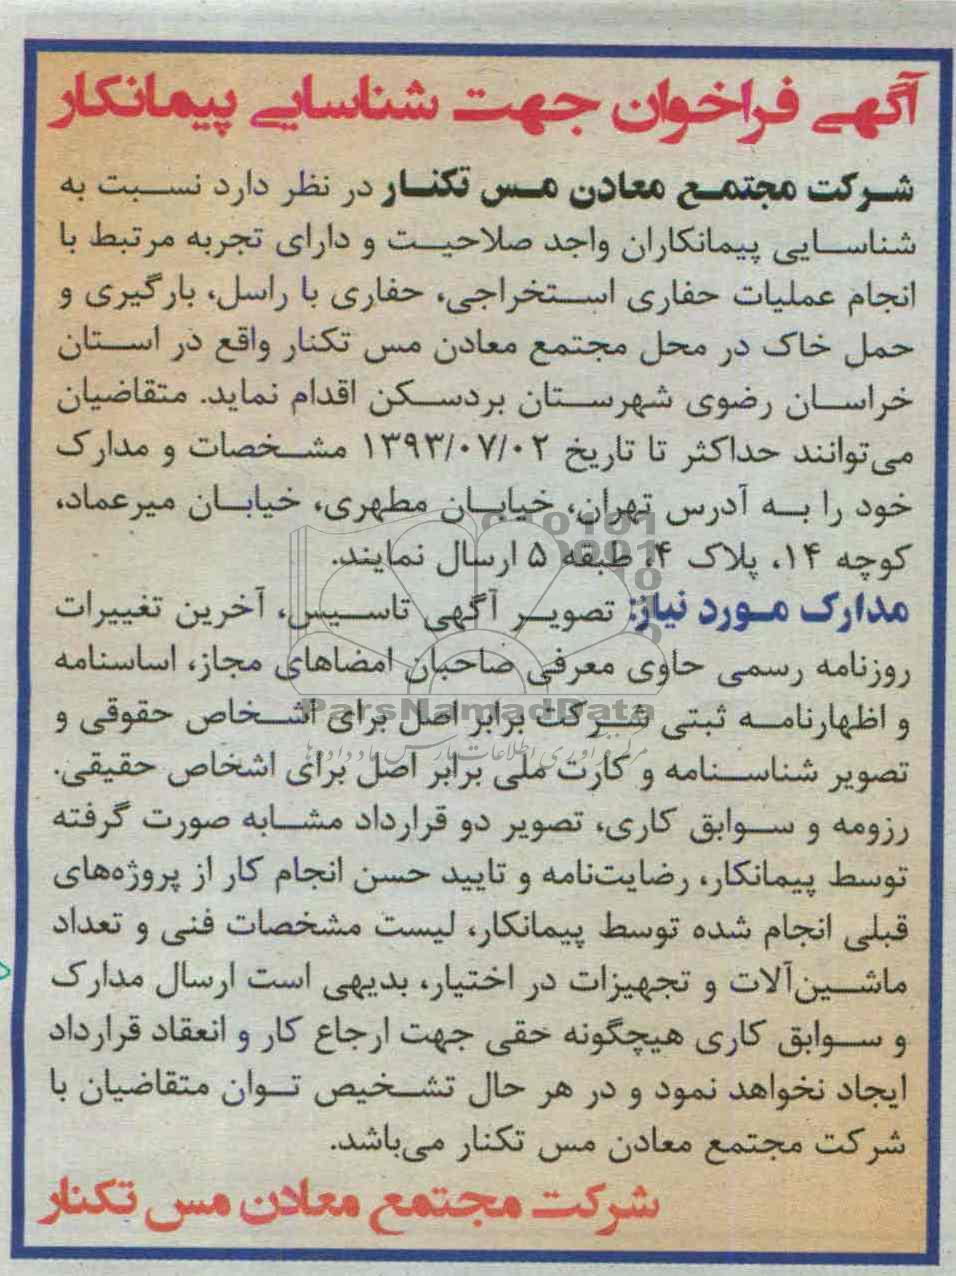 آگهی فراخوان جهت شناسایی پیمانکار
شرکت مجتمع معادن مس تکنار در نظر دارد نسبت به
شناسایی پیمانکاران واجد صلاحیت و دارای تجربه مرتبط با
انجام عملیات حفاری استخراجی، حفاری با راسل، بارگیری و
حمل خاک در محل مجتمع معادن مس تکنار واقع در استان
خراسان رضوی شهرستان بردسکن اقدام نماید. متقاضیان
می‌توانند حداکثر تا تاریخ ۱۳۹۳/۰۷/۰۲ مشخصات و مدارک
خود را به آدرس تهران، خیابان مطهری، خیابان میرعماد،
کوچه ۱۴، پلاک ۴، طبقه ۵ ارسال نمایند.
مدارک مورد نیاز: تصویر آگهی تاسیس، آخرین تغییرات
روزنامه رسمی حاوی معرفی صاحبان امضاهای مجاز، اساسنامه
و اظهارنامه ثبتی شرکت برابر اصل برای اشخاص حقوقی و
ParsNamadData
تصویر شناسنامه و کارت ملی برابر اصل برای اشخاص حقیقی.
رزومه و سوابق کاری، تصویر دو قرارداد مشابه صورت گرفته
توسط پیمانکار، رضایت‌نامه و تایید حسن انجام کار از پروژه‌های
قبلی انجام شده توسط پیمانکار، لیست مشخصات فنی و تعداد
ماشین‌آلات و تجهیزات در اختیار، بدیهی است ارسال مدارک
و سوابق کاری هیچگونه حقی جهت ارجاع کار و انعقاد قرارداد
ایجاد نخواهد نمود و در هر حال تشخیص توان متقاضیان با
شرکت مجتمع معادن مس تکنار می‌باشد.
شرکت مجتمع معادن مس تکنار